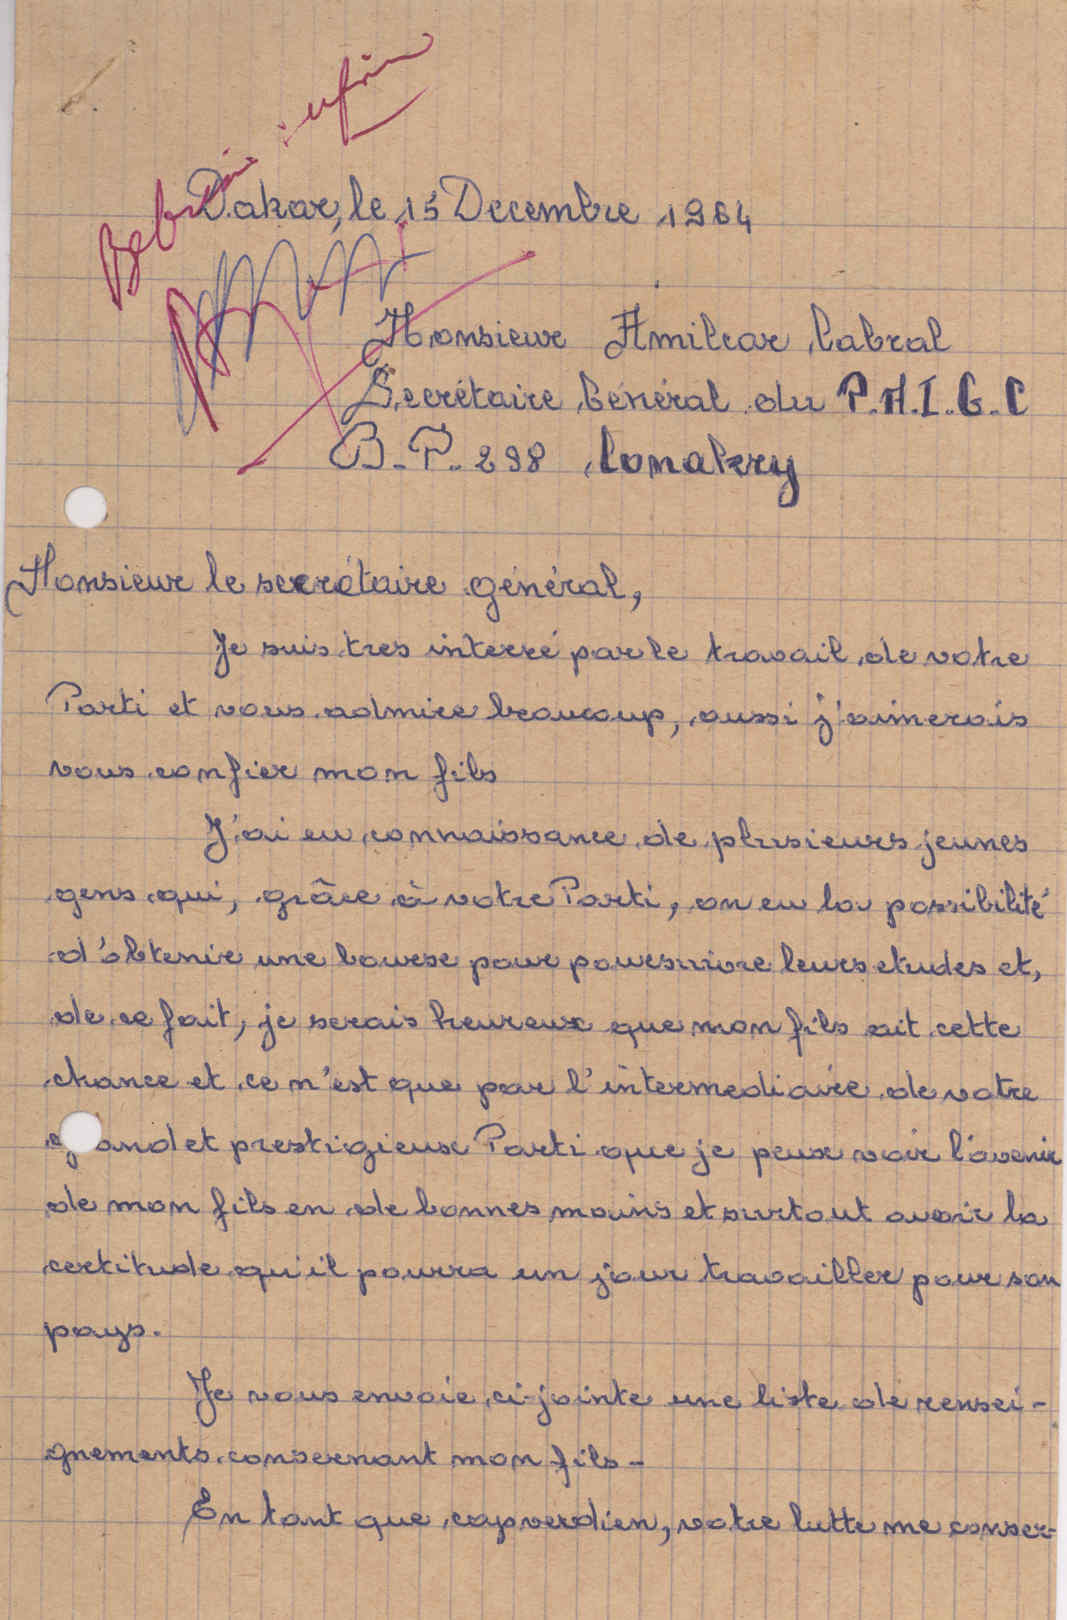 Dakar, le 15 Decembre 1964
Monsieur Amilcar Cabral
Secrétaire Général du P.A.I.G.C
B.P. 298 Conakry
Monsieur le secrétaire général,
Je suis tres interré par le travail de votre
Parti et vous admire beaucoup, aussi j'aimerais
vous confier mon fils
J'ai eu connaissance de plusieurs jeunes
gens qui, grâce à votre Parti, on eu la possibilité
d'obtenir une bourse pour poursuivre leurs etudes et,
de ce fait, je serais heureux que mon fils ait cette
chance et ce n'est que par l'intermediaire de votre
grand et prestigieux Parti que je peux voir l'avenir
de mon fils en de bonnes mains et surtout avoir la
certitude qu'il pourra un jour travailler pour son
pays.
Je vous envoie ci-jointe une liste de rensei-
gnements consernant mon fils-
En tant que capverdien, votre lutte me conser-